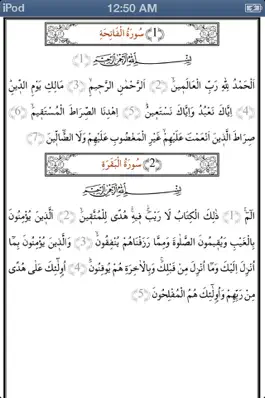 iPod 12:50 AM
﴿1﴾ سُورَةُ الْفَاتِحَةِ
بِسْمِ اللّٰهِ الرَّحْمٰنِ الرَّحِيمِ ﴿1﴾
اَلْحَمْدُ لِلّٰهِ رَبِّ الْعَالَمِينَۙ ﴿2﴾ اَلرَّحْمٰنِ الرَّحِيمِۙ ﴿3﴾ مَالِكِ يَوْمِ الدِّينِۜ
﴿4﴾ اِيَّاكَ نَعْبُدُ وَاِيَّاكَ نَسْتَعِينُۜ ﴿5﴾ اِهْدِنَا الصِّرَاطَ الْمُسْتَقِيمَۙ ﴿6﴾
صِرَاطَ الَّذِينَ اَنْعَمْتَ عَلَيْهِمْۙ غَيْرِ الْمَغْضُوبِ عَلَيْهِمْ وَلَا الضَّٓالِّينَ ﴿7﴾
﴿2﴾ سُورَةُ الْبَقَرَةِ
بِسْمِ اللّٰهِ الرَّحْمٰنِ الرَّحِيمِ
الٓمٓۚ ﴿1﴾ ذٰلِكَ الْكِتَابُ لَا رَيْبَۚ فِيهِۚ هُدًى لِلْمُتَّقِينَۙ ﴿2﴾ اَلَّذِينَ يُؤْمِنُونَ
بِالْغَيْبِ وَيُقِيمُونَ الصَّلٰوةَ وَمِمَّا رَزَقْنَاهُمْ يُنْفِقُونَۙ ﴿3﴾ وَالَّذِينَ يُؤْمِنُونَ بِمَٓا
اُنْزِلَ اِلَيْكَ وَمَٓا اُنْزِلَ مِنْ قَبْلِكَۚ وَبِالْاٰخِرَةِ هُمْ يُوقِنُونَۜ ﴿4﴾ اُو۬لٰٓئِكَ عَلٰى هُدًى
مِنْ رَبِّهِمْ وَاُو۬لٰٓئِكَ هُمُ الْمُفْلِحُونَ ﴿5﴾